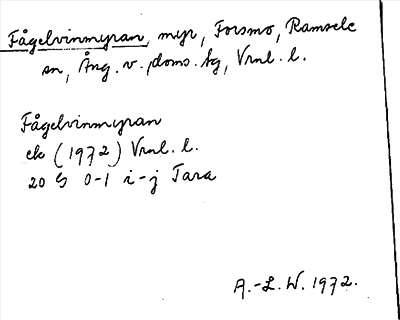 Fågelvinmyran, myr, Forsmo, Ramsele
sn, Ång. v. doms. kg, Vrnl. l.
Fågelvinmyran
ek (1972) Vrnl. l.
20 G 0-1 i-j Tara
A.-L. W. 1972.